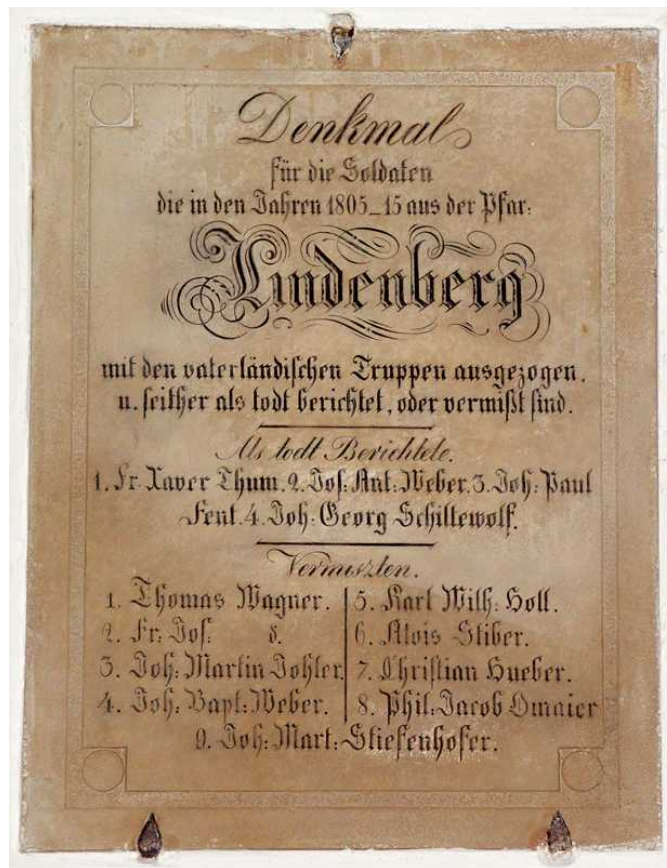 Denkmal
für die Soldaten
die in den Jahren 1805_15 aus der Pfar:
Lindenberg
mit den vaterländischen Truppen ausgezogen,
u. seither als todt berichtet, oder vermißt sind.
Als todt Berichtete.
1. Fr. Xaver Thum. 2. Jos: Ant: Weber. 3. Joh: Paul
Fent. 4. Joh: Georg Schiltewolf.
Vermiszten.
1. Thomas Wagner.
2. Fr: Jos:
3. Joh: Martin Johler.
4. Joh: Bapt: Weber.
5. Karl Wilh: Holl.
6. Alois Stiber.
7. Christian Hueber.
8. Phil: Jacob Omaier
9. Joh: Mart: Stiefenhofer.